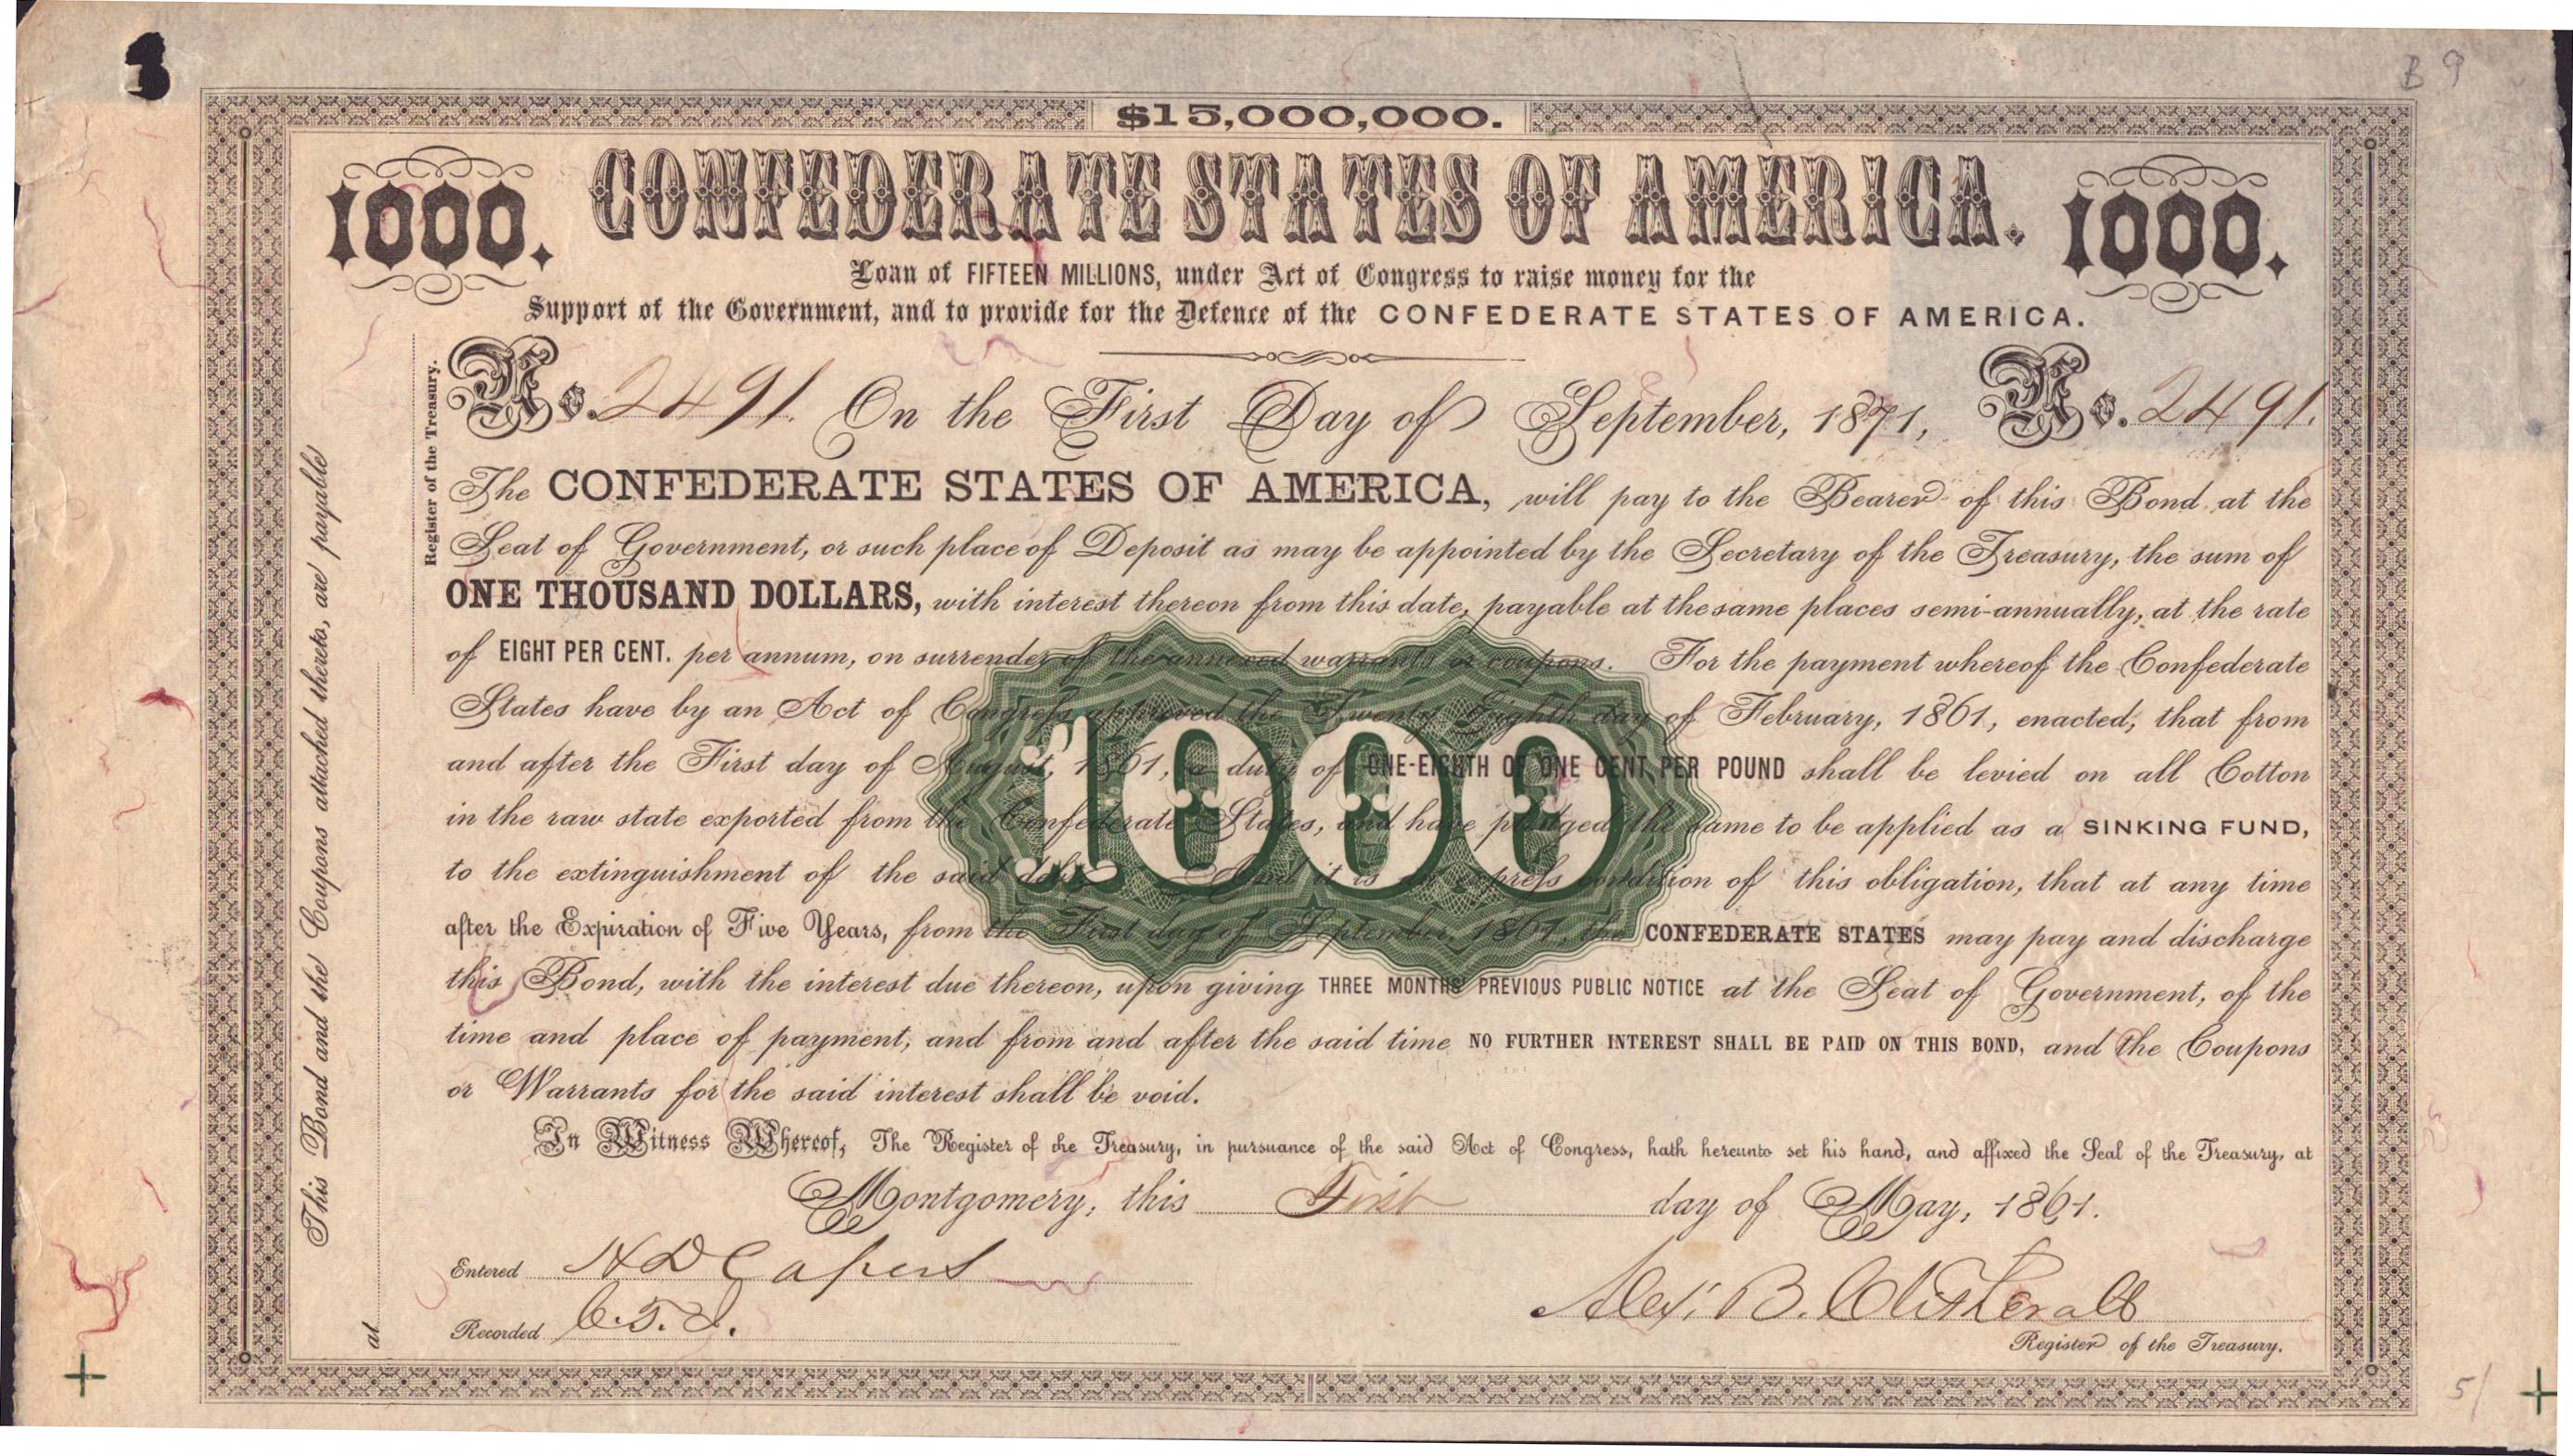 B 9
$15,000,000.
1000. CONFEDERATE STATES OF AMERICA. 1000.
Loan of FIFTEEN MILLIONS, under Act of Congress to raise money for the
Support of the Government, and to provide for the Defence of the CONFEDERATE STATES OF AMERICA.
No. 2491. On the First Day of September, 1871, No. 2491.
The CONFEDERATE STATES OF AMERICA, will pay to the Bearer of this Bond at the
Seat of Government, or such place of Deposit as may be appointed by the Secretary of the Treasury, the sum of
ONE THOUSAND DOLLARS, with interest thereon from this date, payable at the same places semi-annually, at the rate
of EIGHT PER CENT. per annum, on surrender of the annexed warrants or coupons. For the payment whereof the Confederate
States have by an Act of Congress approved the Twenty Eighth day of February, 1861, enacted, that from
and after the First day of August, 1861, a duty of ONE-EIGHTH OF ONE CENT PER POUND shall be levied on all Cotton
in the raw state exported from the Confederate States, and have pledged the same to be applied as a SINKING FUND,
to the extinguishment of the said debt. And it is an express condition of this obligation, that at any time
after the Expiration of Five Years, from the First day of September, 1861, the CONFEDERATE STATES may pay and discharge
this Bond, with the interest due thereon, upon giving THREE MONTHS' PREVIOUS PUBLIC NOTICE at the Seat of Government, of the
time and place of payment, and from and after the said time NO FURTHER INTEREST SHALL BE PAID ON THIS BOND, and the Coupons
or Warrants for the said interest shall be void.
1000
In Witness Whereof, The Register of the Treasury, in pursuance of the said Act of Congress, hath hereunto set his hand, and affixed the Seal of the Treasury, at
Montgomery, this First day of May, 1861.
Entered H D Capers
Recorded C. T. J.
Alex. B. Clitherall
Register of the Treasury.
This Bond and the Coupons attached thereto, are payable
at
Register of the Treasury.
5/